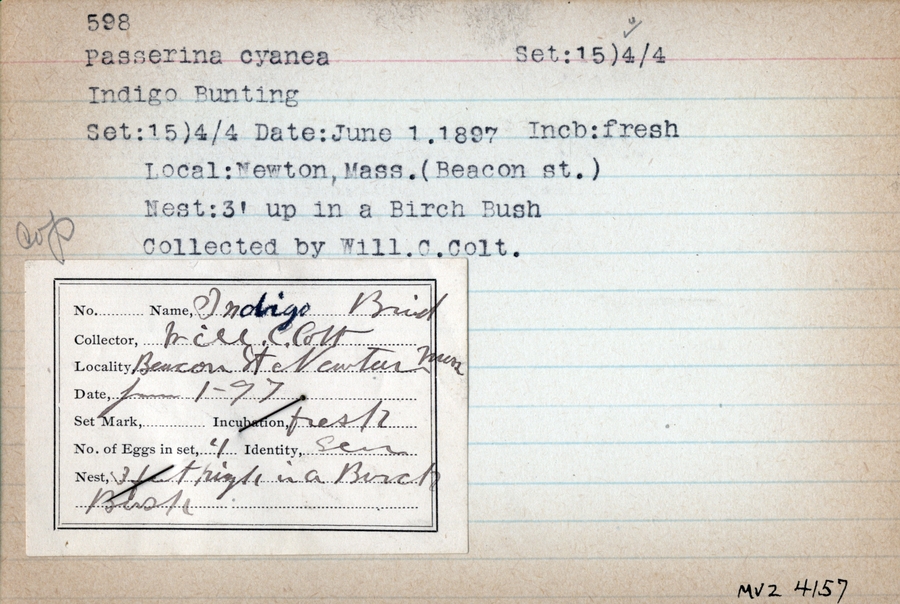 598
Passerina cyanea Set:15)4/4
Indigo Bunting
Set:15)4/4 Date:June 1.1897 Incb:fresh
Local:Newton,Mass.(Beacon st.)
Nest:3' up in a Birch Bush
Collected by Will.C.Colt.
No. Name, Indigo Bird
Collector, Will.C.Colt
Locality, Beacon St Newton Mass
Date, June 1-97.
Set Mark, Incubation, fresh
No. of Eggs in set, 4 Identity, Seen
Nest, 3 feet high in a Birch
Bush
MVZ 4157